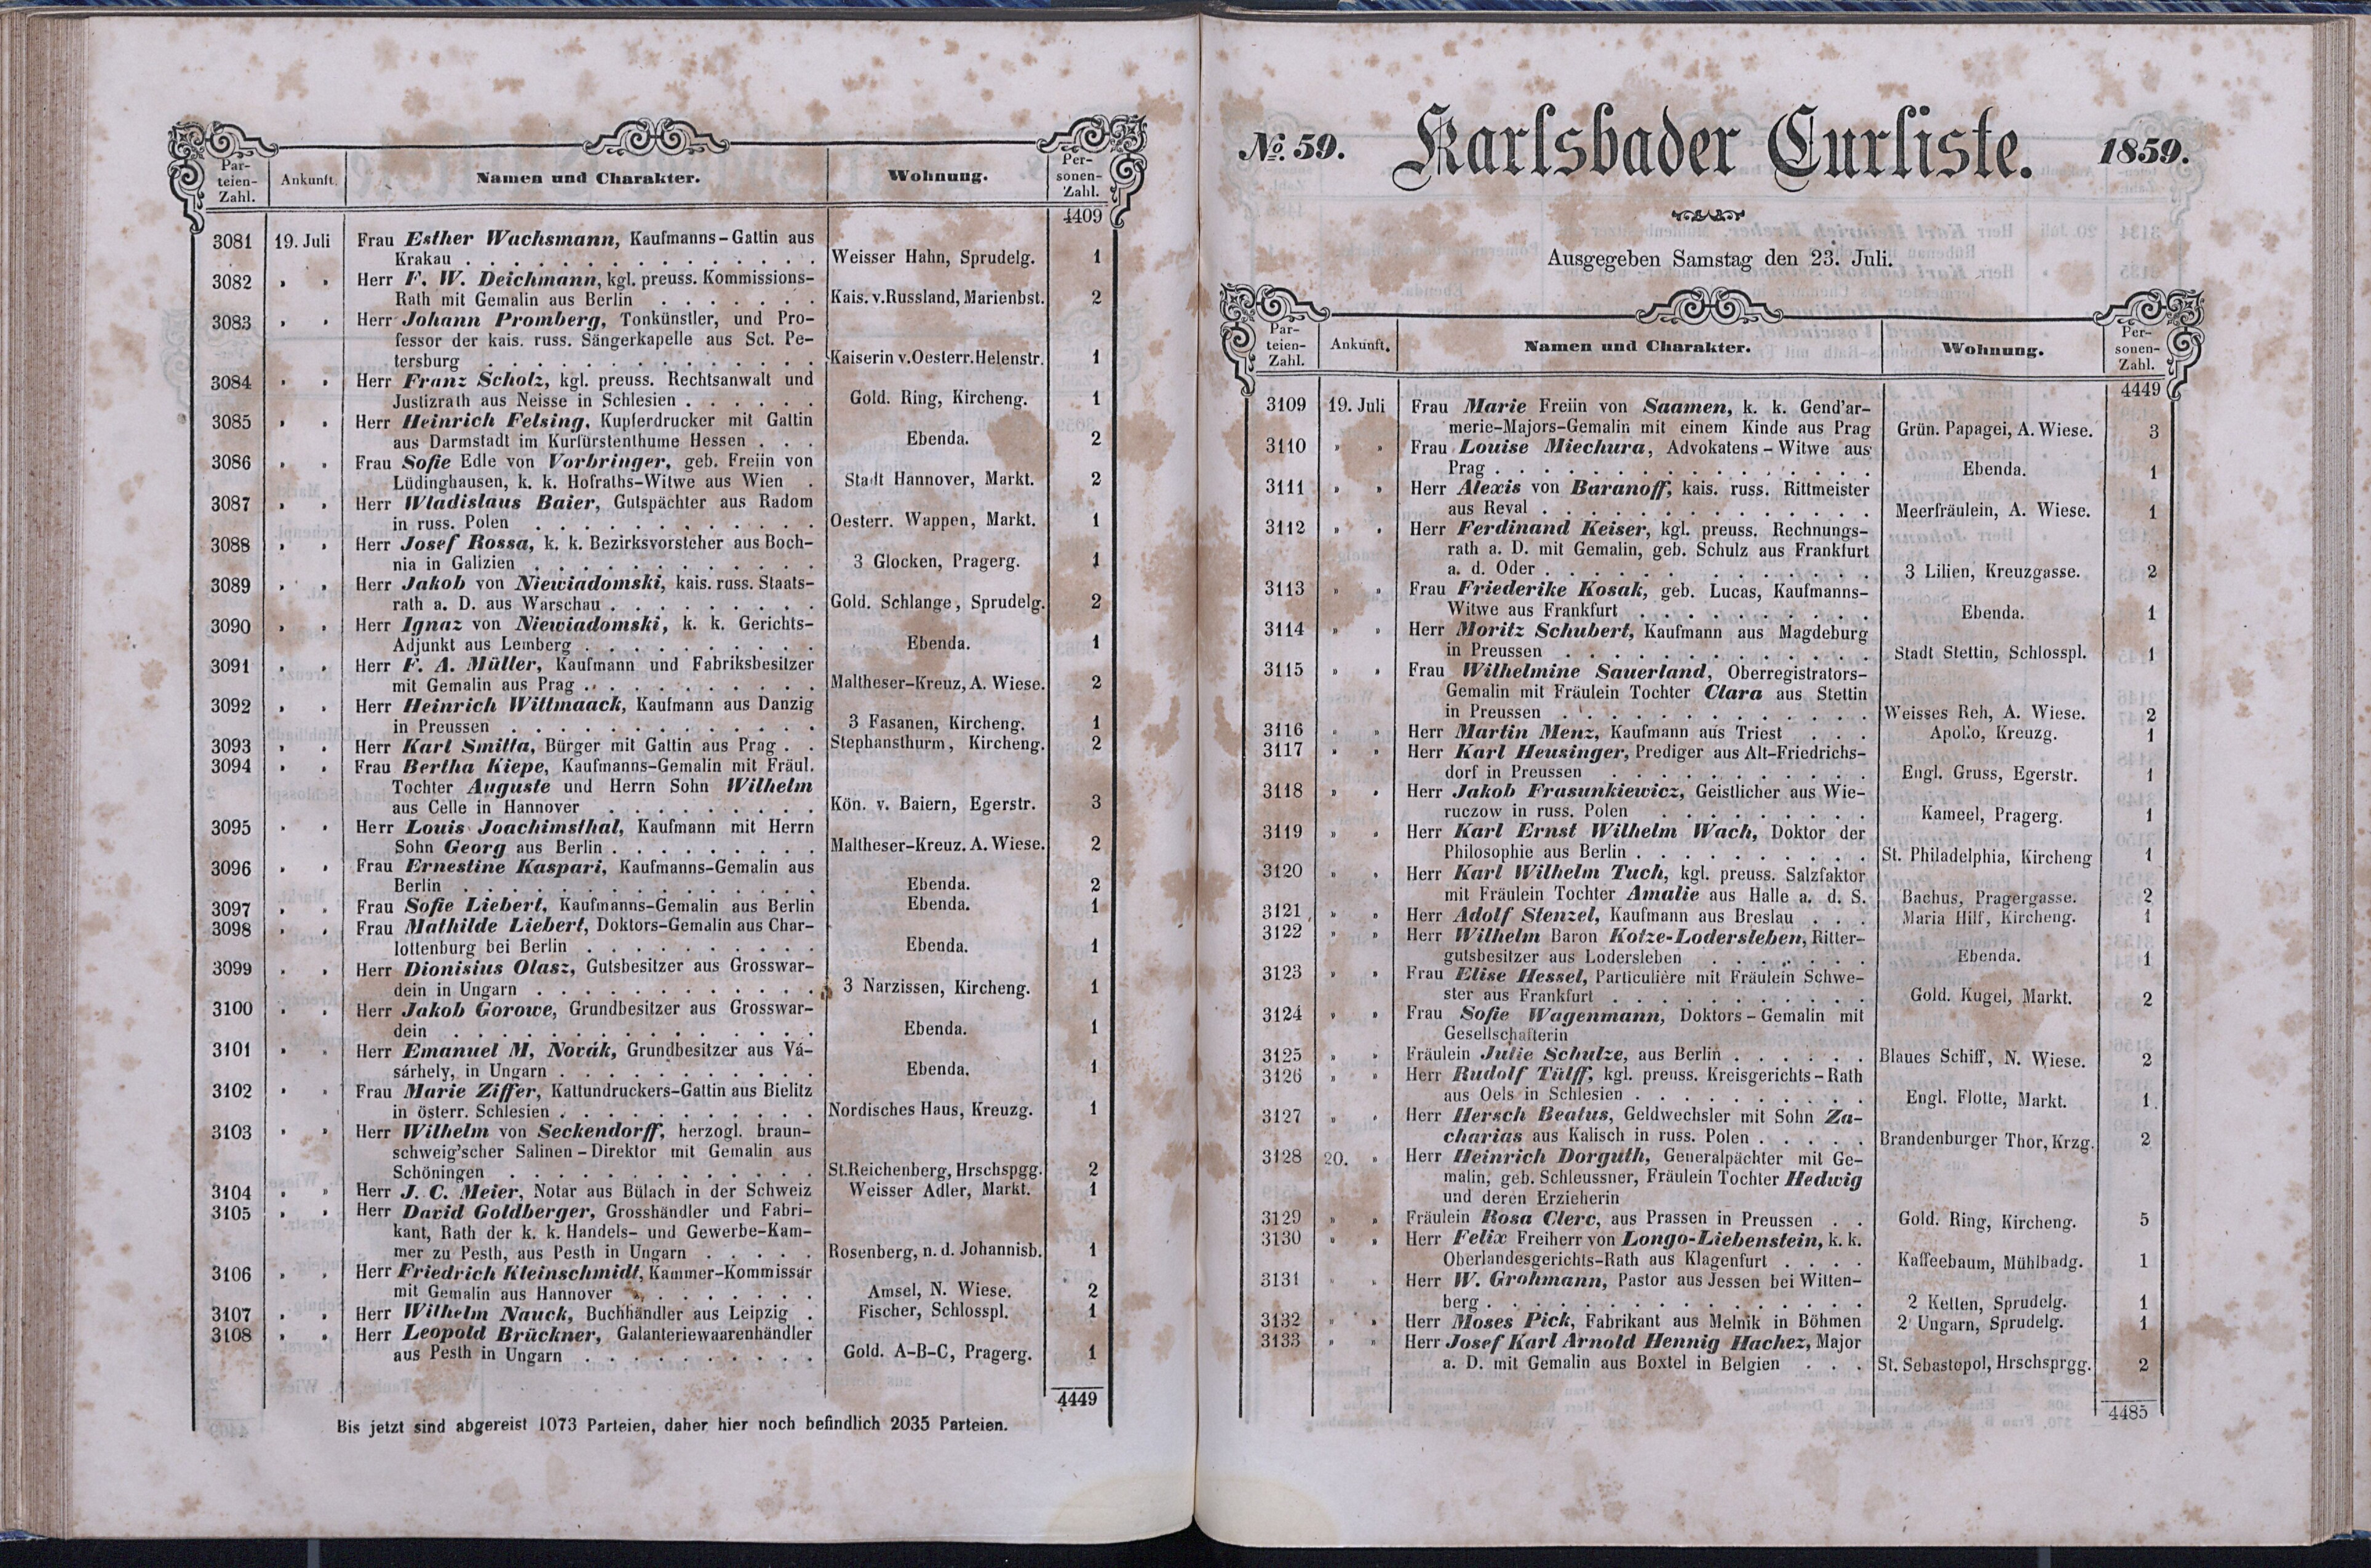 Par-
teien-
Zahl. Ankunft. Namen und Charakter. Wohnung. Per-
sonen-
Zahl.
4409
3081 19. Juli Frau Esther Wachsmann, Kaufmanns-Gattin aus
Krakau . . . Weisser Hahn, Sprudelg. 1
3082 „ „ Herr F. W. Deichmann, kgl. preuss. Kommissions-
Rath mit Gemalin aus Berlin . . . Kais. v. Russland, Marienbst. 2
3083 „ „ Herr Johann Promberg, Tonkünstler, und Pro-
fessor der kais. russ. Sängerkapelle aus Sct. Pe-
tersburg . . . Kaiserin v. Oesterr. Helenstr. 1
3084 „ „ Herr Franz Scholz, kgl. preuss. Rechtsanwalt und
Justizrath aus Neisse in Schlesien . . . Gold. Ring, Kircheng. 1
3085 „ „ Herr Heinrich Felsing, Kupferdrucker mit Gattin
aus Darmstadt im Kurfürstenthume Hessen . . . Ebenda. 2
3086 „ „ Frau Sofie Edle von Vorbringer, geb. Freiin von
Lüdinghausen, k. k. Hofraths-Witwe aus Wien . Stadt Hannover, Markt. 2
3087 „ „ Herr Wladislaus Baier, Gutspächter aus Radom
in russ. Polen . . . Oesterr. Wappen, Markt. 1
3088 „ „ Herr Josef Rossa, k. k. Bezirksvorsteher aus Boch-
nia in Galizien . . . 3 Glocken, Pragerg. 1
3089 „ „ Herr Jakob von Niewiadomski, kais. russ. Staats-
rath a. D. aus Warschau . . . Gold. Schlange, Sprudelg. 2
3090 „ „ Herr Ignaz von Niewiadomski, k. k. Gerichts-
Adjunkt aus Lemberg . . . Ebenda. 1
3091 „ „ Herr F. A. Müller, Kaufmann und Fabriksbesitzer
mit Gemalin aus Prag . . . Maltheser-Kreuz, A. Wiese. 2
3092 „ „ Herr Heinrich Wittmaack, Kaufmann aus Danzig
in Preussen . . . 3 Fasanen, Kircheng. 1
3093 „ „ Herr Karl Smitta, Bürger mit Gattin aus Prag . . Stephansthurm, Kircheng. 2
3094 „ „ Frau Bertha Kiepe, Kaufmanns-Gemalin mit Fräul.
Tochter Auguste und Herrn Sohn Wilhelm
aus Celle in Hannover . . . Kön. v. Baiern, Egerstr. 3
3095 „ „ Herr Louis Joachimsthal, Kaufmann mit Herrn
Sohn Georg aus Berlin . . . Maltheser-Kreuz. A. Wiese. 2
3096 „ „ Frau Ernestine Kaspari, Kaufmanns-Gemalin aus
Berlin . . . Ebenda. 2
3097 „ „ Frau Sofie Liebert, Kaufmanns-Gemalin aus Berlin Ebenda. 1
3098 „ „ Frau Mathilde Liebert, Doktors-Gemalin aus Char-
lottenburg bei Berlin . . . Ebenda. 1
3099 „ „ Herr Dionisius Olasz, Gutsbesitzer aus Grosswar-
dein in Ungarn . . . 3 Narzissen, Kircheng. 1
3100 „ „ Herr Jakob Gorowe, Grundbesitzer aus Grosswar-
dein . . . Ebenda. 1
3101 „ „ Herr Emanuel M, Novák, Grundbesitzer aus Vá-
sárhely, in Ungarn . . . Ebenda. 1
3102 „ „ Frau Marie Ziffer, Kattundruckers-Gattin aus Bielitz
in österr. Schlesien . . . Nordisches Haus, Kreuzg. 1
3103 „ „ Herr Wilhelm von Seckendorff, herzogl. braun-
schweig'scher Salinen-Direktor mit Gemalin aus
Schöningen . . . St. Reichenberg, Hrschspgg. 2
3104 „ „ Herr J. C. Meier, Notar aus Bülach in der Schweiz Weisser Adler, Markt. 1
3105 „ „ Herr David Goldberger, Grosshändler und Fabri-
kant, Rath der k. k. Handels- und Gewerbe-Kam-
mer zu Pesth, aus Pesth in Ungarn . . . Rosenberg, n. d. Johannisb. 1
3106 „ „ Herr Friedrich Kleinschmidt, Kammer-Kommissär
mit Gemalin aus Hannover . . . Amsel, N. Wiese. 2
3107 „ „ Herr Wilhelm Nauck, Buchhändler aus Leipzig . Fischer, Schlosspl. 1
3108 „ „ Herr Leopold Brückner, Galanteriewaarenhändler
aus Pesth in Ungarn . . . Gold. A-B-C, Pragerg. 1
4449
Bis jetzt sind abgereist 1073 Parteien, daher hier noch befindlich 2035 Parteien.
No. 59. Karlsbader Curliste. 1859.
Ausgegeben Samstag den 23. Juli.
Par-
teien-
Zahl. Ankunft. Namen und Charakter. Wohnung. Per-
sonen-
Zahl.
4449
3109 19. Juli Frau Marie Freiin von Saamen, k. k. Gend'ar-
merie-Majors-Gemalin mit einem Kinde aus Prag Grün. Papagei, A. Wiese. 3
3110 „ „ Frau Louise Miechura, Advokatens-Witwe aus
Prag . . . Ebenda. 1
3111 „ „ Herr Alexis von Baranoff, kais. russ. Rittmeister
aus Reval . . . Meerfräulein, A. Wiese. 1
3112 „ „ Herr Ferdinand Keiser, kgl. preuss. Rechnungs-
rath a. D. mit Gemalin, geb. Schulz aus Frankfurt
a. d. Oder . . . 3 Lilien, Kreuzgasse. 2
3113 „ „ Frau Friederike Kosak, geb. Lucas, Kaufmanns-
Witwe aus Frankfurt . . . Ebenda. 1
3114 „ „ Herr Moritz Schubert, Kaufmann aus Magdeburg
in Preussen . . . Stadt Stettin, Schlosspl. 1
3115 „ „ Frau Wilhelmine Sauerland, Oberregistrators-
Gemalin mit Fräulein Tochter Clara aus Stettin
in Preussen . . . Weisses Reh, A. Wiese. 2
3116 „ „ Herr Martin Menz, Kaufmann aus Triest . . . Apollo, Kreuzg. 1
3117 „ „ Herr Karl Heusinger, Prediger aus Alt-Friedrichs-
dorf in Preussen . . . Engl. Gruss, Egerstr. 1
3118 „ „ Herr Jakob Frasunkiewicz, Geistlicher aus Wie-
ruczow in russ. Polen . . . Kameel, Pragerg. 1
3119 „ „ Herr Karl Ernst Wilhelm Wach, Doktor der
Philosophie aus Berlin . . . St. Philadelphia, Kircheng 1
3120 „ „ Herr Karl Wilhelm Tuch, kgl. preuss. Salzfaktor
mit Fräulein Tochter Amalie aus Halle a. d. S. Bachus, Pragergasse. 2
3121 „ „ Herr Adolf Stenzel, Kaufmann aus Breslau . . . Maria Hilf, Kircheng. 1
3122 „ „ Herr Wilhelm Baron Kotze-Lodersleben, Ritter-
gutsbesitzer aus Lodersleben . . . Ebenda. 1
3123 „ „ Frau Elise Hessel, Particulière mit Fräulein Schwe-
ster aus Frankfurt . . . Gold. Kugel, Markt. 2
3124 „ „ Frau Sofie Wagenmann, Doktors-Gemalin mit
Gesellschafterin
3125 „ „ Fräulein Julie Schulze, aus Berlin . . . Blaues Schiff, N. Wiese. 2
3126 „ „ Herr Rudolf Tülff, kgl. preuss. Kreisgerichts-Rath
aus Oels in Schlesien . . . Engl. Flotte, Markt. 1
3127 „ „ Herr Hersch Beatus, Geldwechsler mit Sohn Za-
charias aus Kalisch in russ. Polen . . . Brandenburger Thor, Krzg. 2
3128 20. „ Herr Heinrich Dorguth, Generalpächter mit Ge-
malin, geb. Schleussner, Fräulein Tochter Hedwig
und deren Erzieherin
3129 „ „ Fräulein Rosa Clerc, aus Prassen in Preussen . . Gold. Ring, Kircheng. 5
3130 „ „ Herr Felix Freiherr von Longo-Liebenstein, k. k.
Oberlandesgerichts-Rath aus Klagenfurt . . . Kaffeebaum, Mühlbadg. 1
3131 „ „ Herr W. Grohmann, Pastor aus Jessen bei Witten-
berg . . . 2 Ketten, Sprudelg. 1
3132 „ „ Herr Moses Pick, Fabrikant aus Melnik in Böhmen 2 Ungarn, Sprudelg. 1
3133 „ „ Herr Josef Karl Arnold Hennig Hachez, Major
a. D. mit Gemalin aus Boxtel in Belgien . . . St. Sebastopol, Hrschsprgg. 2
4485